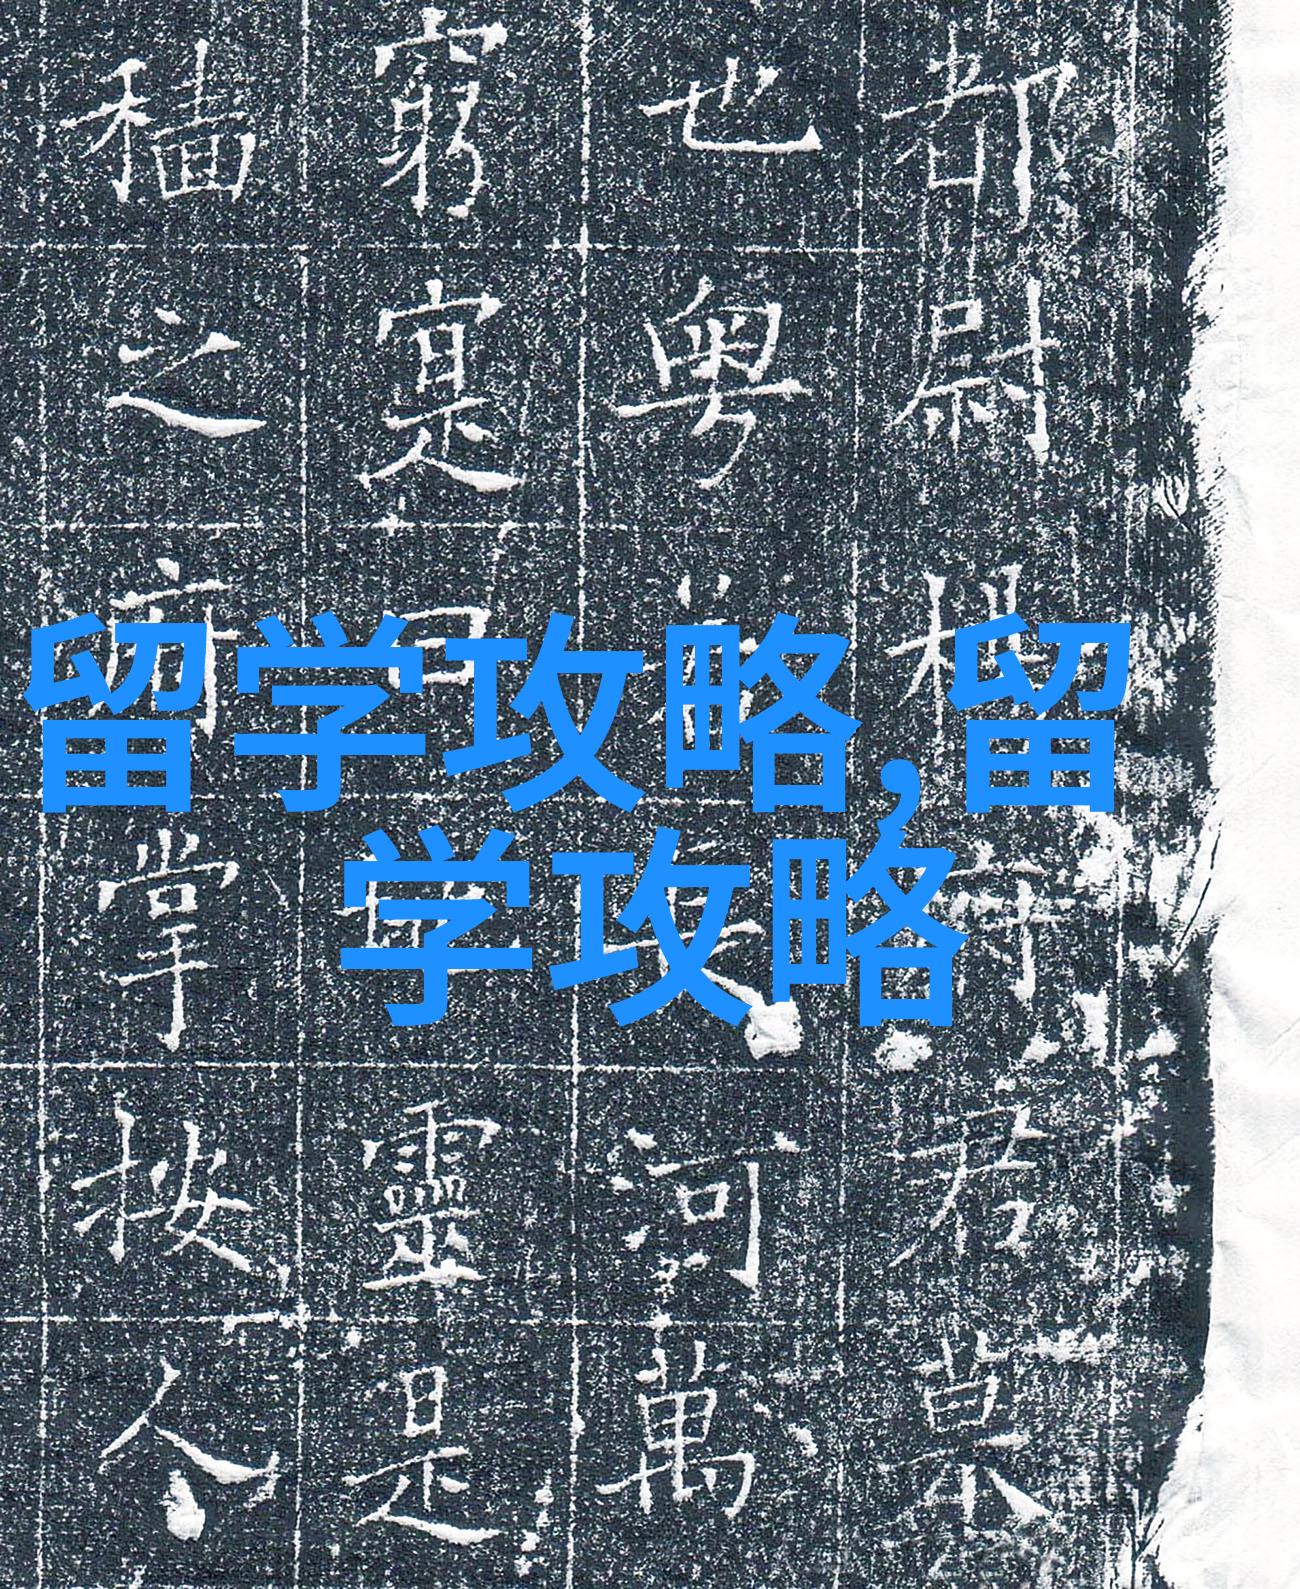 留学攻略,留
学攻略
都尉楊守君
也粤河萬
窮寔靈是
穡之掌按人